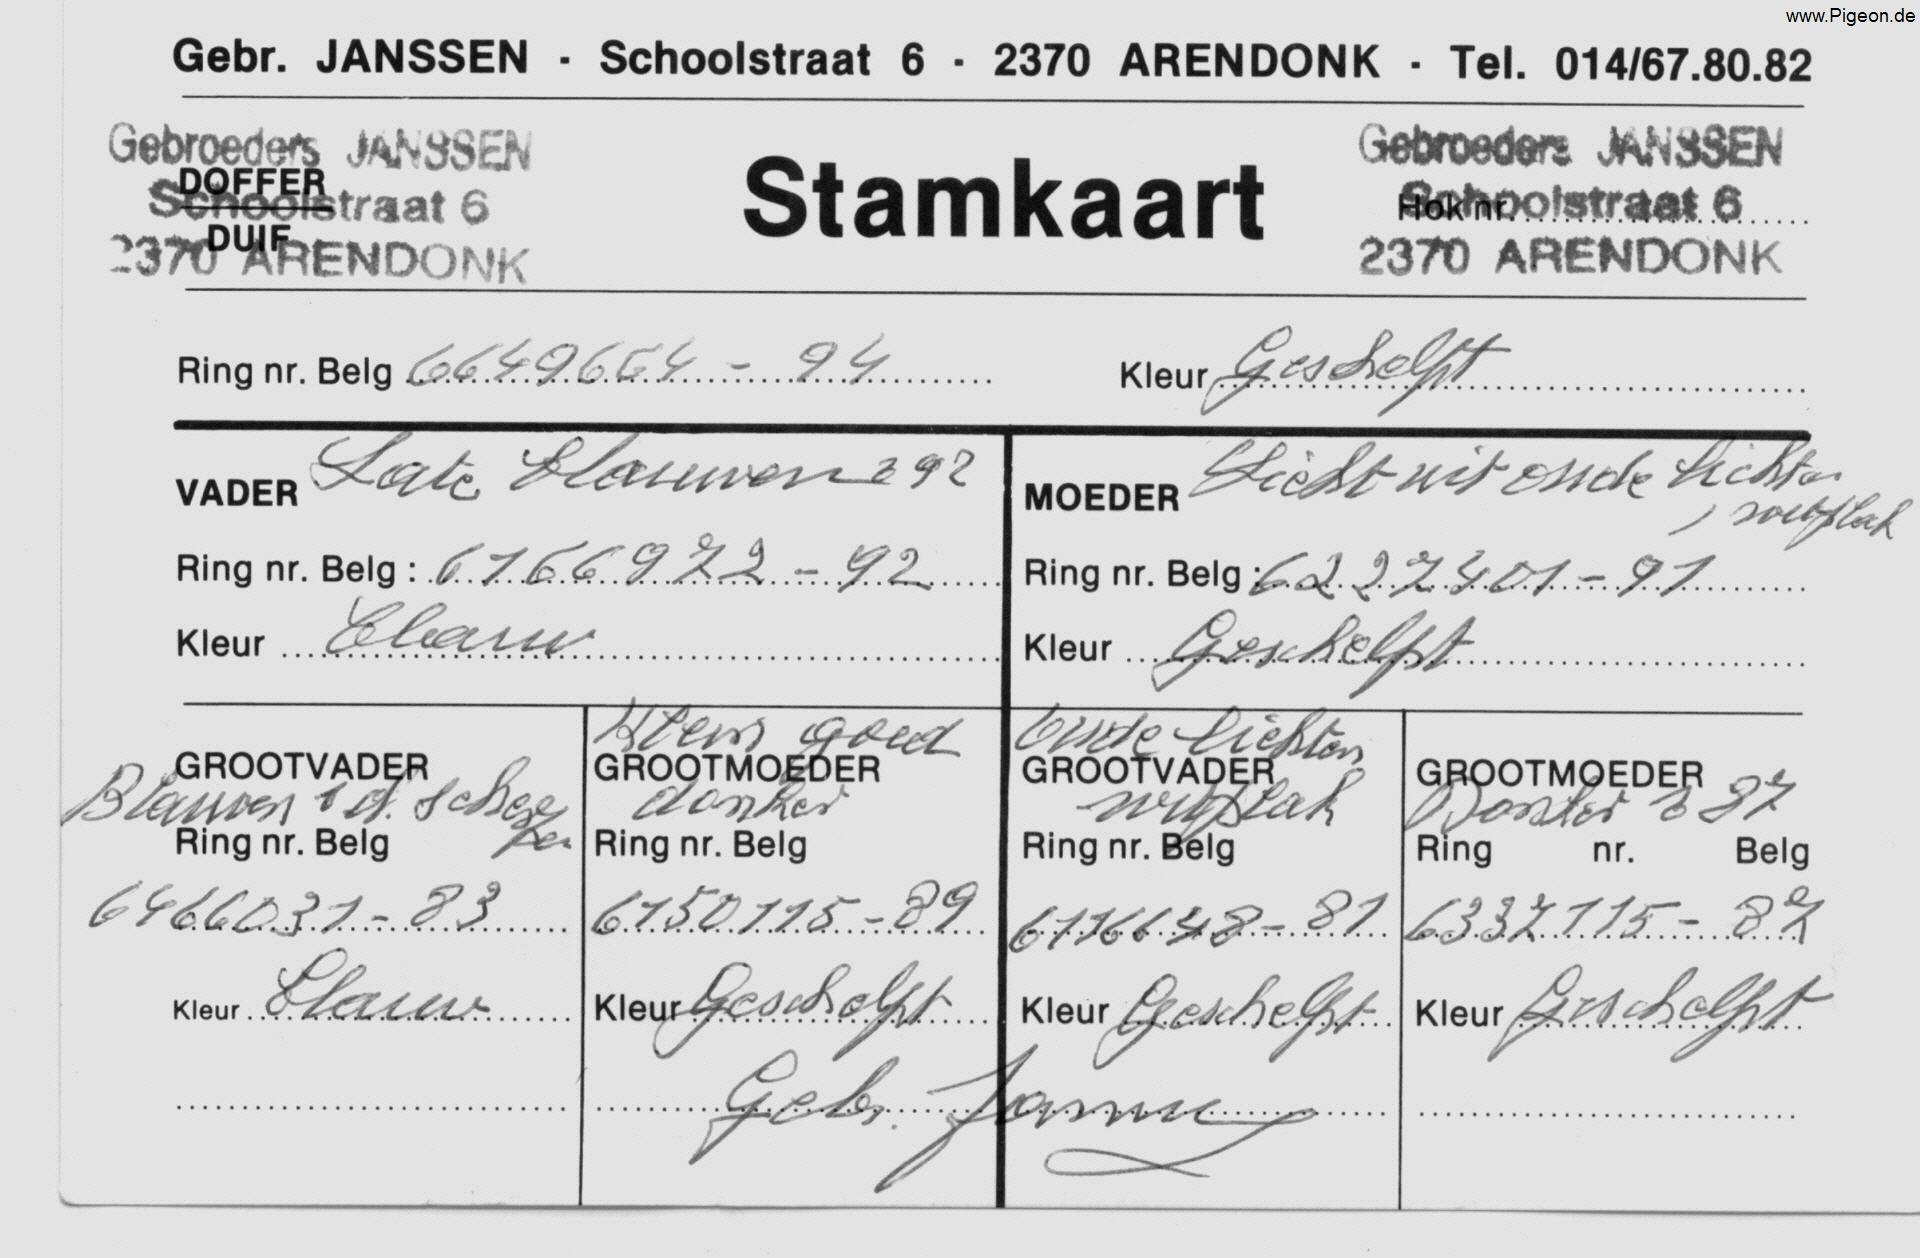 www.Pigeon.de
Gebr. JANSSEN - Schoolstraat 6 - 2370 ARENDONK - Tel. 014/67.80.82
Gebroeders JANSSEN
Schoolstraat 6
2370 ARENDONK
DOFFER
DUIF
Stamkaart
Gebroeders JANSSEN
Schoolstraat 6
2370 ARENDONK
Hok nr.
Ring nr. Belg 6649664 - 94
Kleur Geschelpt
VADER Late Blauwen 92
Ring nr. Belg : 6766972 - 92
Kleur Blauw
MOEDER Licht uit oude lichten
witplak
Ring nr. Belg : 6227401 - 91
Kleur Geschelpt
GROOTVADER
Blauwen
Ring nr. Belg
6466031 - 83
Kleur Blauw
goed
GROOTMOEDER
donker
Ring nr. Belg
6750115 - 89
Kleur Geschelpt
Oude lichten
GROOTVADER
witplak
Ring nr. Belg
6116648 - 81
Kleur Geschelpt
GROOTMOEDER
Donker 87
Ring nr. Belg
6337115 - 87
Kleur Geschelpt
Gebr. Janssen